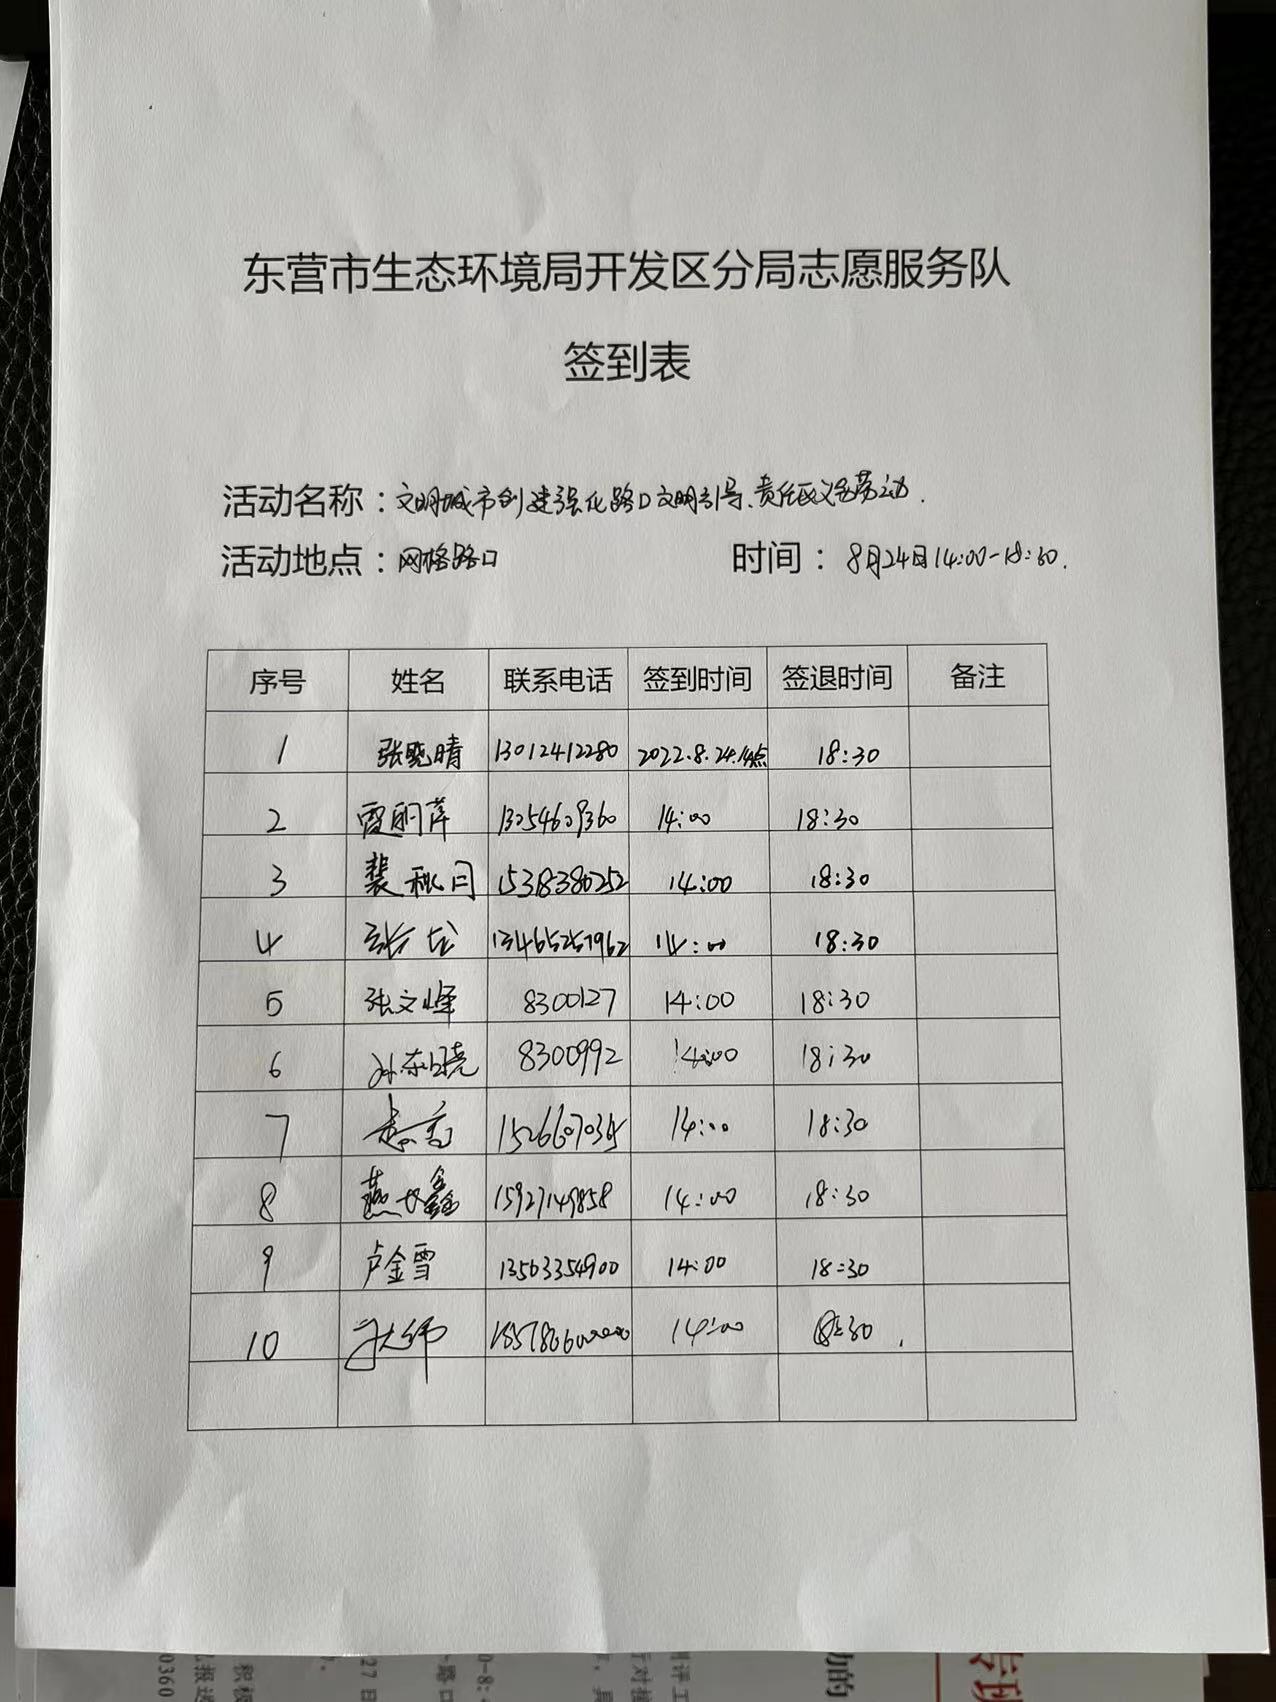 东营市生态环境局开发区分局志愿服务队
签到表
活动名称：文明城市创建强化路口文明引导、责任区义务劳动.
活动地点：网格路口 时间：8月24日14:00-18:30.
序号 姓名 联系电话 签到时间 签退时间 备注
1 张晓晴 13012412280 2022.8.24.14点 18:30
2 13054609360 14:00 18:30
3 裴秋月 15318380252 14:00 18:30
4 13465257962 14:00 18:30
5 张文峰 8300127 14:00 18:30
6 孙东晓 8300992 14:00 18:30
7 14:00 18:30
8 15927149858 14:00 18:30
9 卢金雪 13563354900 14:00 18:30
10 14:00 18:30